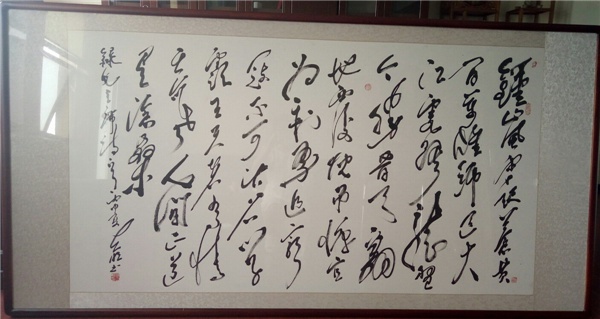 鍾山風雨起蒼黄
百萬雄師過大
江虎踞龍盤
今勝昔天翻
地覆慨而慷宜
将剩勇追窮
寇不可沽名學
霸王天若有情
天亦老人間正道
是滄桑
錄毛主席詩